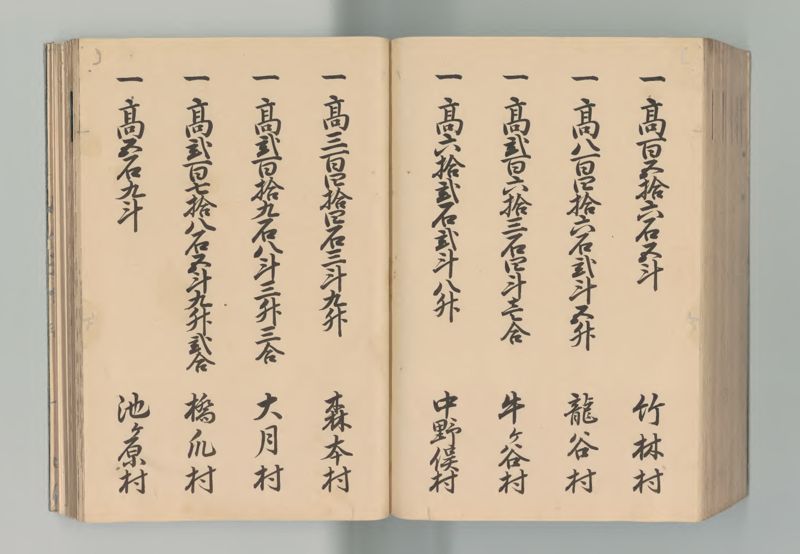 一 高百五拾六石五斗 竹林村
一 高八百四拾六石弐斗五升 龍谷村
一 高弐百六拾三石四斗壱合 牛ヶ谷村
一 高六拾弐石弐斗八升 中野俣村
一 高三百四拾四石三斗九升 森本村
一 高弐百拾九石八斗三升三合 大月村
一 高弐百七拾八石五斗九升弐合 橋爪村
一 高五石九斗 池ヶ原村